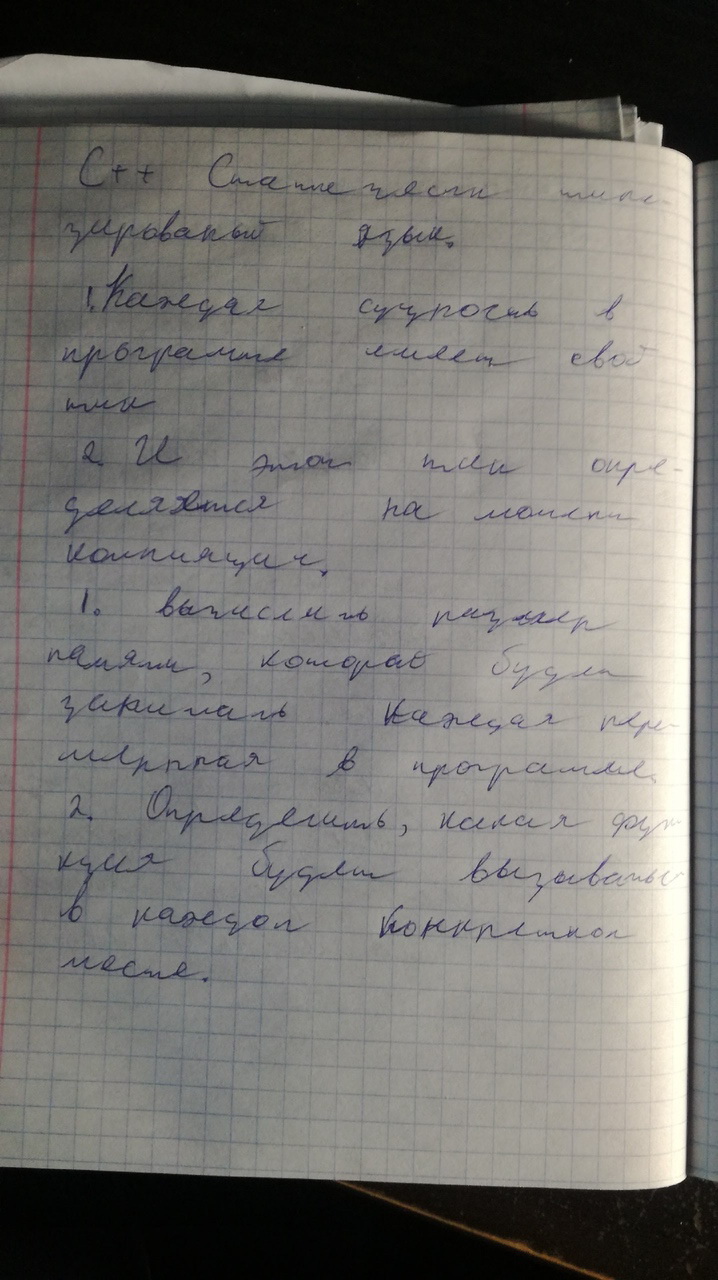 С++ Статически типи-
зированый язык.
1. Каждая сущность в
программе имеет свой
тип
2. И этот тип опре-
деляется на момент
компиляции.
1. вычислить размер
памяти, которую будет
занимать каждая пере-
менная в программе.
2. Определить, какая фун-
кция будет вызываться
в каждом конкретном
месте.